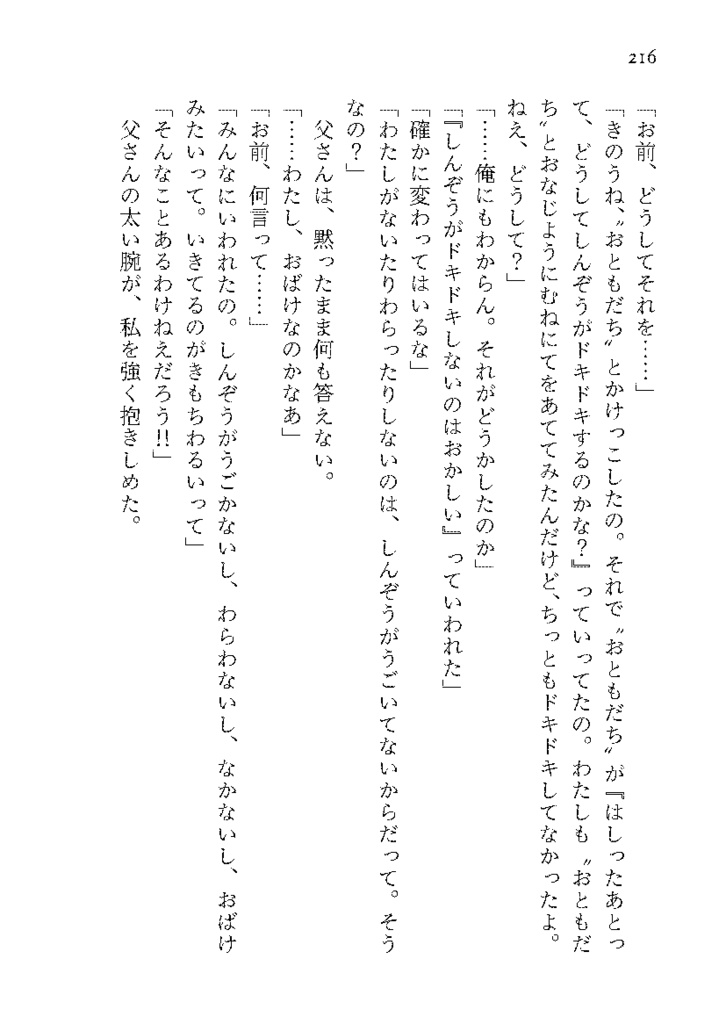 216
「お前、どうしてそれを……」
「きのうね、〝おともだち〟とかけっこしたの。それで〝おともだち〟が『はしったあとっ
て、どうしてしんぞうがドキドキするのかな？』っていってたの。わたしも〝おともだ
ち〟とおなじようにむねにてをあててみたんだけど、ちっともドキドキしてなかったよ。
ねえ、どうして？」
「……俺にもわからん。それがどうかしたのか」
「『しんぞうがドキドキしないのはおかしい』っていわれた」
「確かに変わってはいるな」
「わたしがないたりわらったりしないのは、しんぞうがうごいてないからだって。そう
なの？」
父さんは、黙ったまま何も答えない。
「……わたし、おばけなのかなあ」
「お前、何言って……」
「みんなにいわれたの。しんぞうがうごかないし、わらわないし、なかないし、おばけ
みたいって。いきてるのがきもちわるいって」
「そんなことあるわけねえだろう!!」
父さんの太い腕が、私を強く抱きしめた。